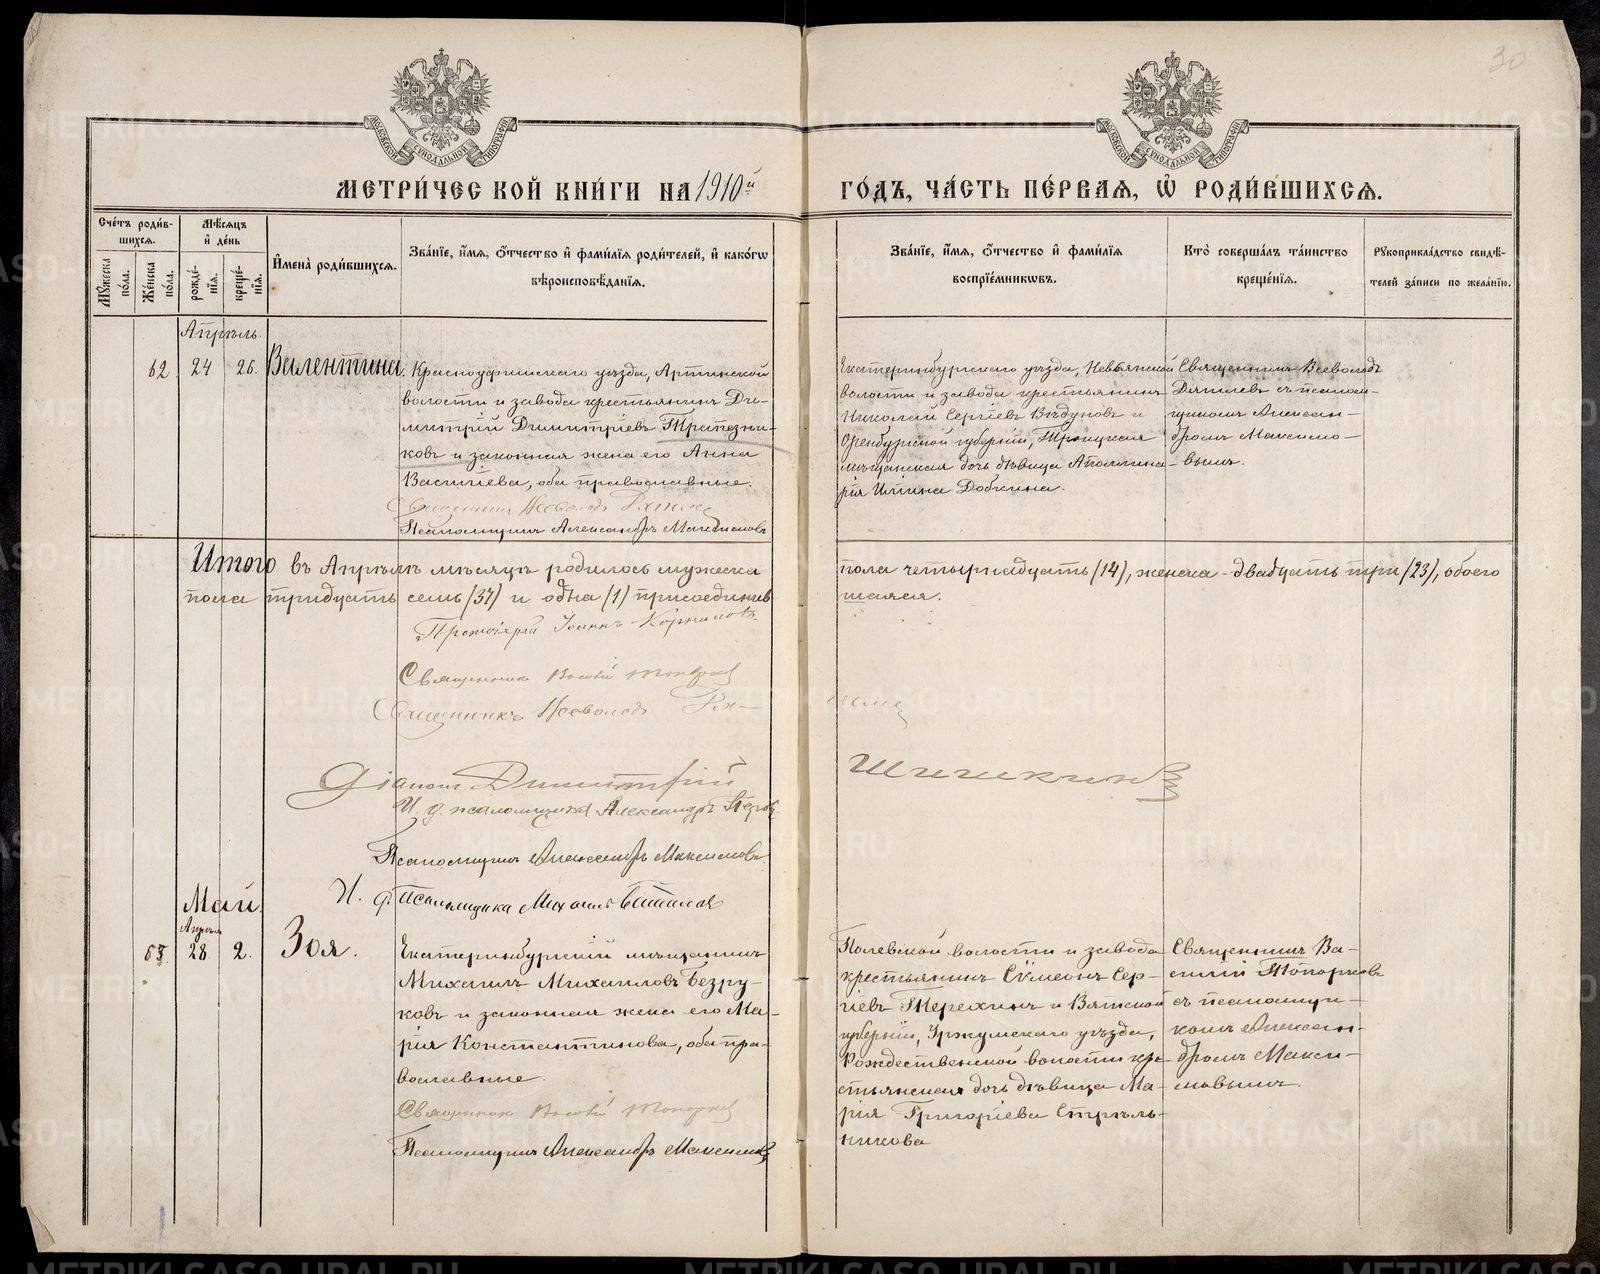 30
МОСКОВСКОЙ СѴНОДАЛЬНОЙ ТИПОГРАФІИ
МОСКОВСКОЙ СѴНОДАЛЬНОЙ ТИПОГРАФІИ
МЕТРИ́ЧЕСКОЙ КНИ́ГИ НА 1910й
ГО́ДЪ, ЧА́СТЬ ПЕ́РВАЯ, Ѡ҆ РОДИ́ВШИХСѦ.
Сче́тъ роди́в-
шихсѧ.
Мꙋ́жеска по́ла.
Же́нска по́ла.
Мѣ́сѧцъ
и҆ де́нь
рожде́-
нїѧ.
креще́-
нїѧ.
И҆мена̀ роди́вшихсѧ.
Зва́нїе, и҆́мѧ, ѻ҆́тчество и҆ фами́лїѧ роди́телей, и҆ како́гѡ
вѣроисповѣ́данїѧ.
Зва́нїе, и҆́мѧ, ѻ҆́тчество и҆ фами́лїѧ
воспрїе́мникѡвъ.
Кто̀ соверша́лъ та́инство
креще́нїѧ.
Рꙋкоприкла́дство свидѣ́-
телей за́писи по жела́нїю.
Апрѣль.
62. 24 26. Валентина.
Красноуфимскаго уѣзда, Артинской
волости и завода крестьянинъ Ди-
митрій Димитріевъ Трапезни-
ковъ и законная жена его Анна
Васильева, оба православные.
Священникъ Всеволодъ
Псаломщикъ Александръ Максимовъ
Екатеринбургскаго уѣзда, Невьянской
волости и завода крестьянинъ
Николай Сергіевъ Вѣдуновъ и
Оренбургской губерніи, Троицкая
мѣщанская дочь дѣвица Аполлина-
рія Ильина Добкина.
Священникъ Всеволодъ
съ псалом-
щикомъ Алексан-
дромъ Максимо-
вымъ.
Итого въ Апрѣлѣ мѣсяцѣ родилось мужеска
пола четырнадцать (14), женска - двадцать три (23), обоего
пола тридцать семь (37) и одна (1) присоединив
шаяся.
Протоіерей Іоаннъ Корниловъ
Священникъ Василій Топорковъ
Священникъ Всеволодъ
Діаконъ Димитрій Шишкинъ
И. д. псаломщика Александръ
Псаломщикъ Александръ Максимовъ
И. д. Псаломщика Михаилъ
Май.
Апрѣля
63. 28 2. Зоя.
Екатеринбургскій мѣщанинъ
Михаилъ Михаиловъ Безру-
ковъ и законная жена его Ма-
рія Константинова, оба пра-
вославные.
Священникъ Василій Топорковъ
Псаломщикъ Александръ Максимовъ
Полевской волости и завода
крестьянинъ Сѵмеонъ Сер-
гіевъ Терехинъ и Вятской
губерніи, Уржумскаго уѣзда,
Рождественской волости кре-
стьянская дочь дѣвица Ма-
рія Григоріева Стрѣль-
никова
Священникъ Ва-
силій Топорковъ
съ псаломщи-
комъ Алексан-
дромъ Макси-
мовымъ.
METRIKI.GASO-URAL.RU